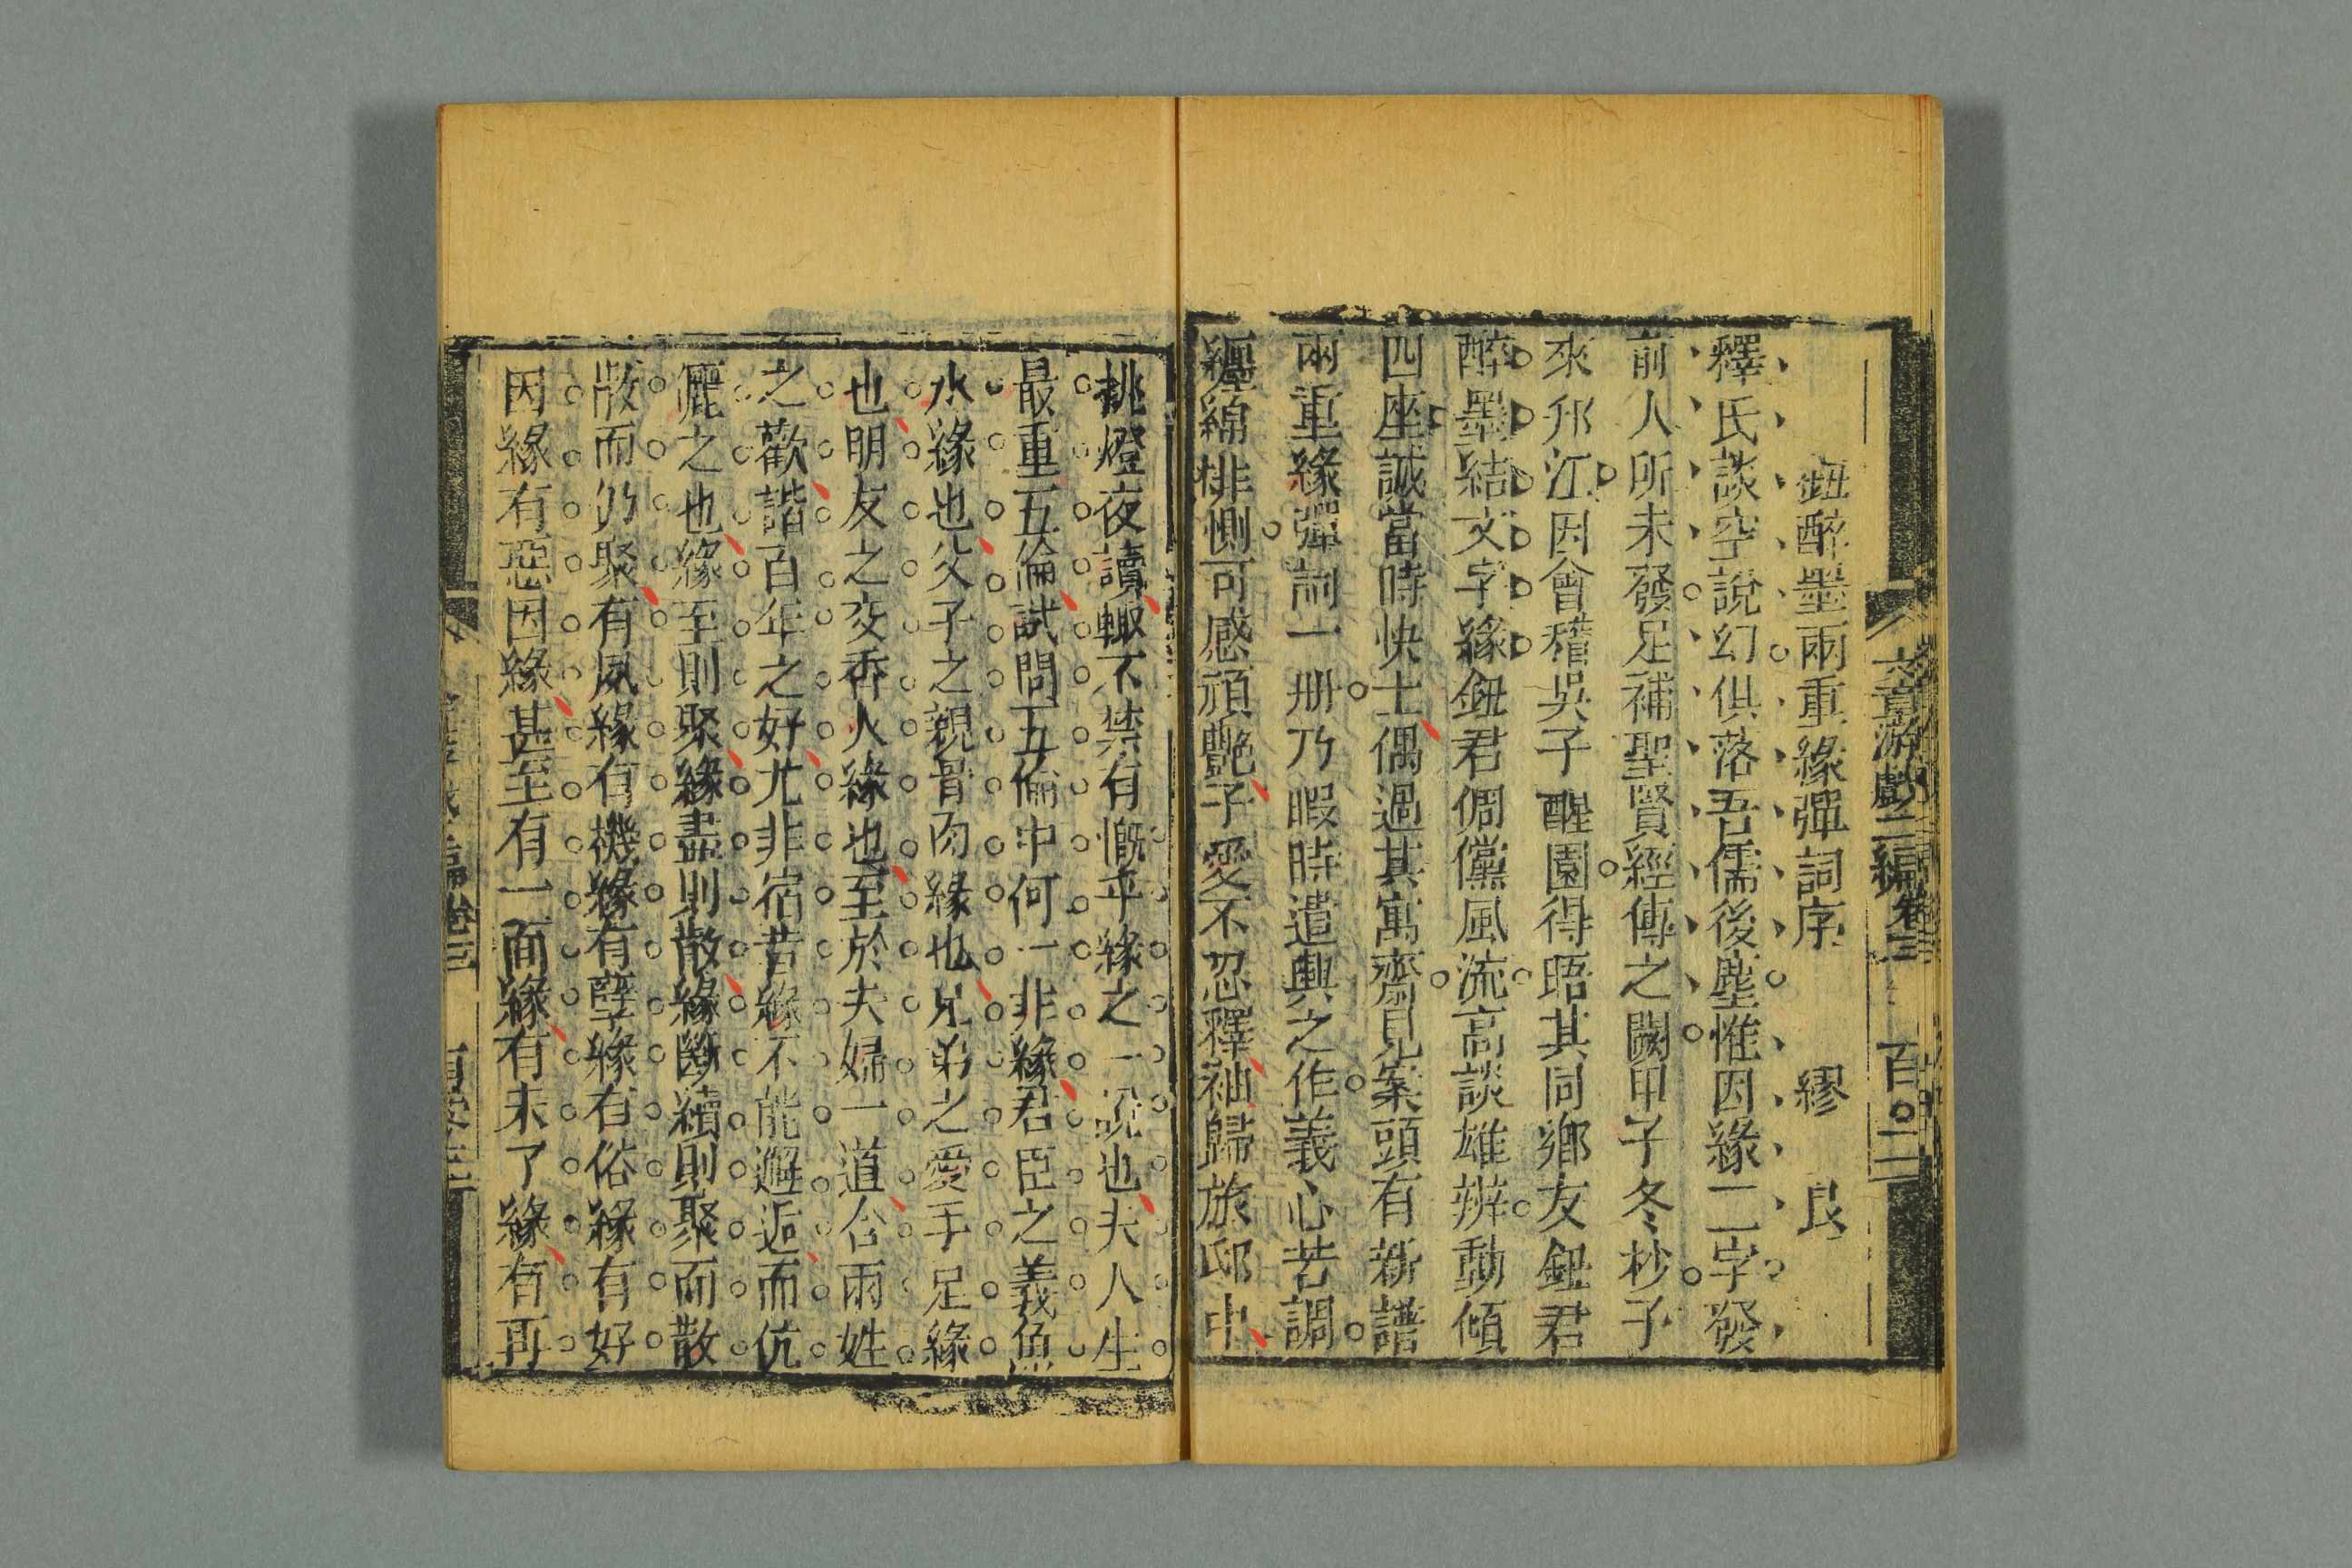 文章游戲二編 卷三 百〇二
鈕醉墨兩重緣彈詞序 繆艮
釋氏談空說幻俱落吾儒後塵惟因緣二字發
前人所未發足補聖賢經傳之闕甲子冬杪子
來邗江因會稽吳子醒園得晤其同鄉友鈕君
醉墨結文字緣鈕君倜儻風流高談雄辨動傾
四座誠當時快士偶過其寓齋見案頭有新譜
兩重緣彈詞一册乃暇時遣興之作義心苦調
纏綿悱惻可感頑艷子愛不忍釋袖歸旅邸中
挑燈夜讀輙不禁有慨乎緣之一說也夫人生
最重五倫試問五倫中何一非緣君臣之義魚
水緣也父子之親骨肉緣也兄弟之愛手足緣
也朋友之交香火緣也至於夫婦一道合兩姓
之歡諧百年之好尤非宿昔緣不能邂逅而伉
儷之也緣至則聚緣盡則散緣斷續則聚而散
散而仍聚有夙緣有機緣有孽緣有俗緣有好
因緣有惡因緣甚至有一面緣有未了緣有再
卷三